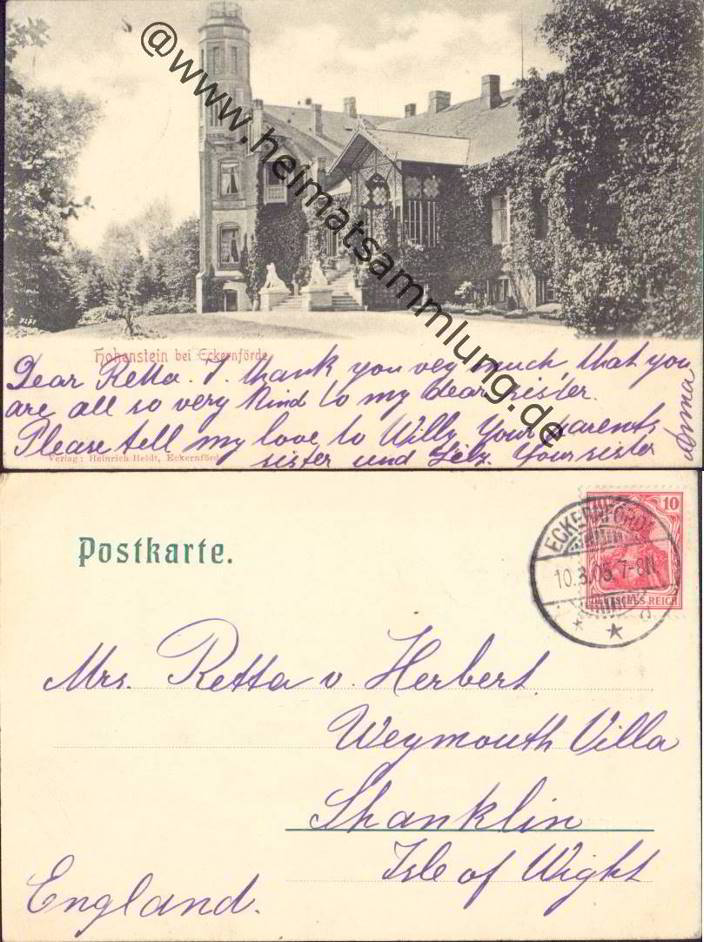 @www.heimatsammlung.de
Hohenstein bei Eckernförde
Dear Retta. I. thank you vey much, that you
are all so very kind to my dear sister.
Please tell my love to Willy Your parents
sister und Lily. Your sister
Anna
Verlag: Heinrich Heldt, Eckernförde
Postkarte.
10
ECKERNFÖRDE
10.3.05 7-8N.
DEUTSCHES REICH
Mrs. Retta v. Herbert.
Weymouth Villa
Shanklin
Isle of Wight
England.